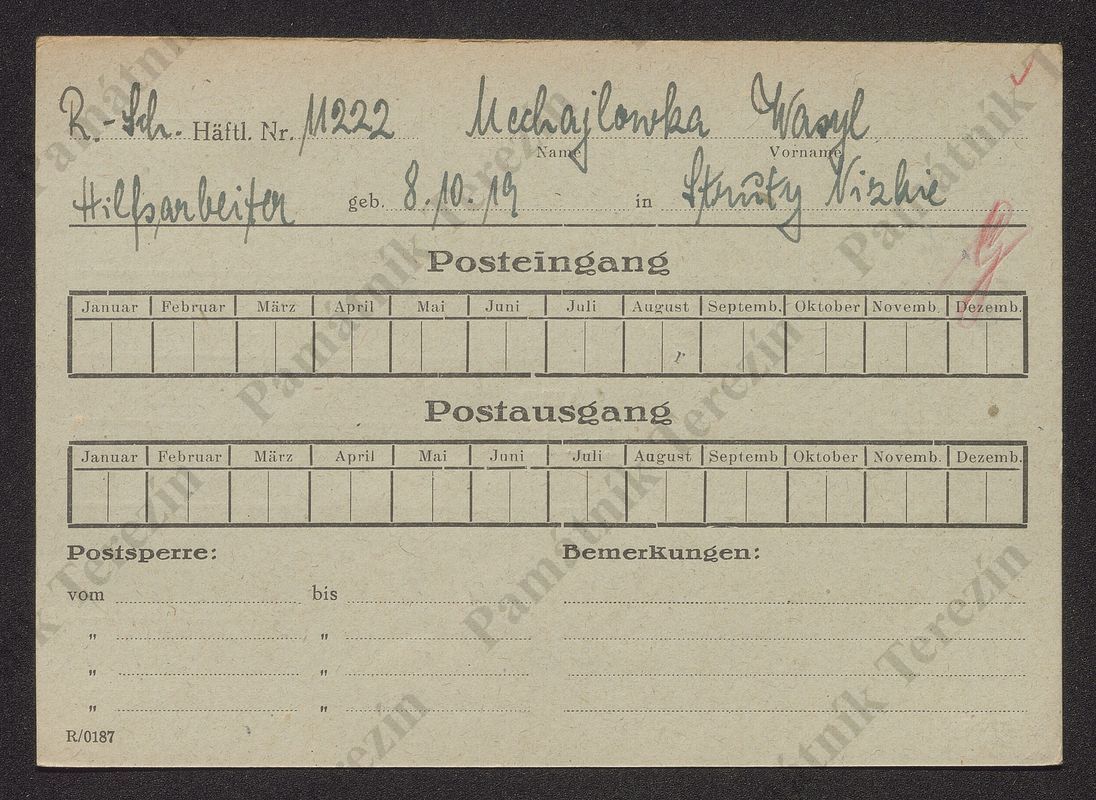 R.-Sch. Häftl. Nr. 11222 Mechajlowka Wasyl
Name Vorname
Hilfsarbeiter geb. 8.10.19 in Struty Nizkie
Posteingang
Januar Februar März April Mai Juni Juli August Septemb. Oktober Novemb. Dezemb.
r
Postausgang
Januar Februar März April Mai Juni Juli August Septemb Oktober Novemb. Dezemb.
Postsperre: Bemerkungen:
vom bis
" "
" "
" "
R/0187
Památník Terezín